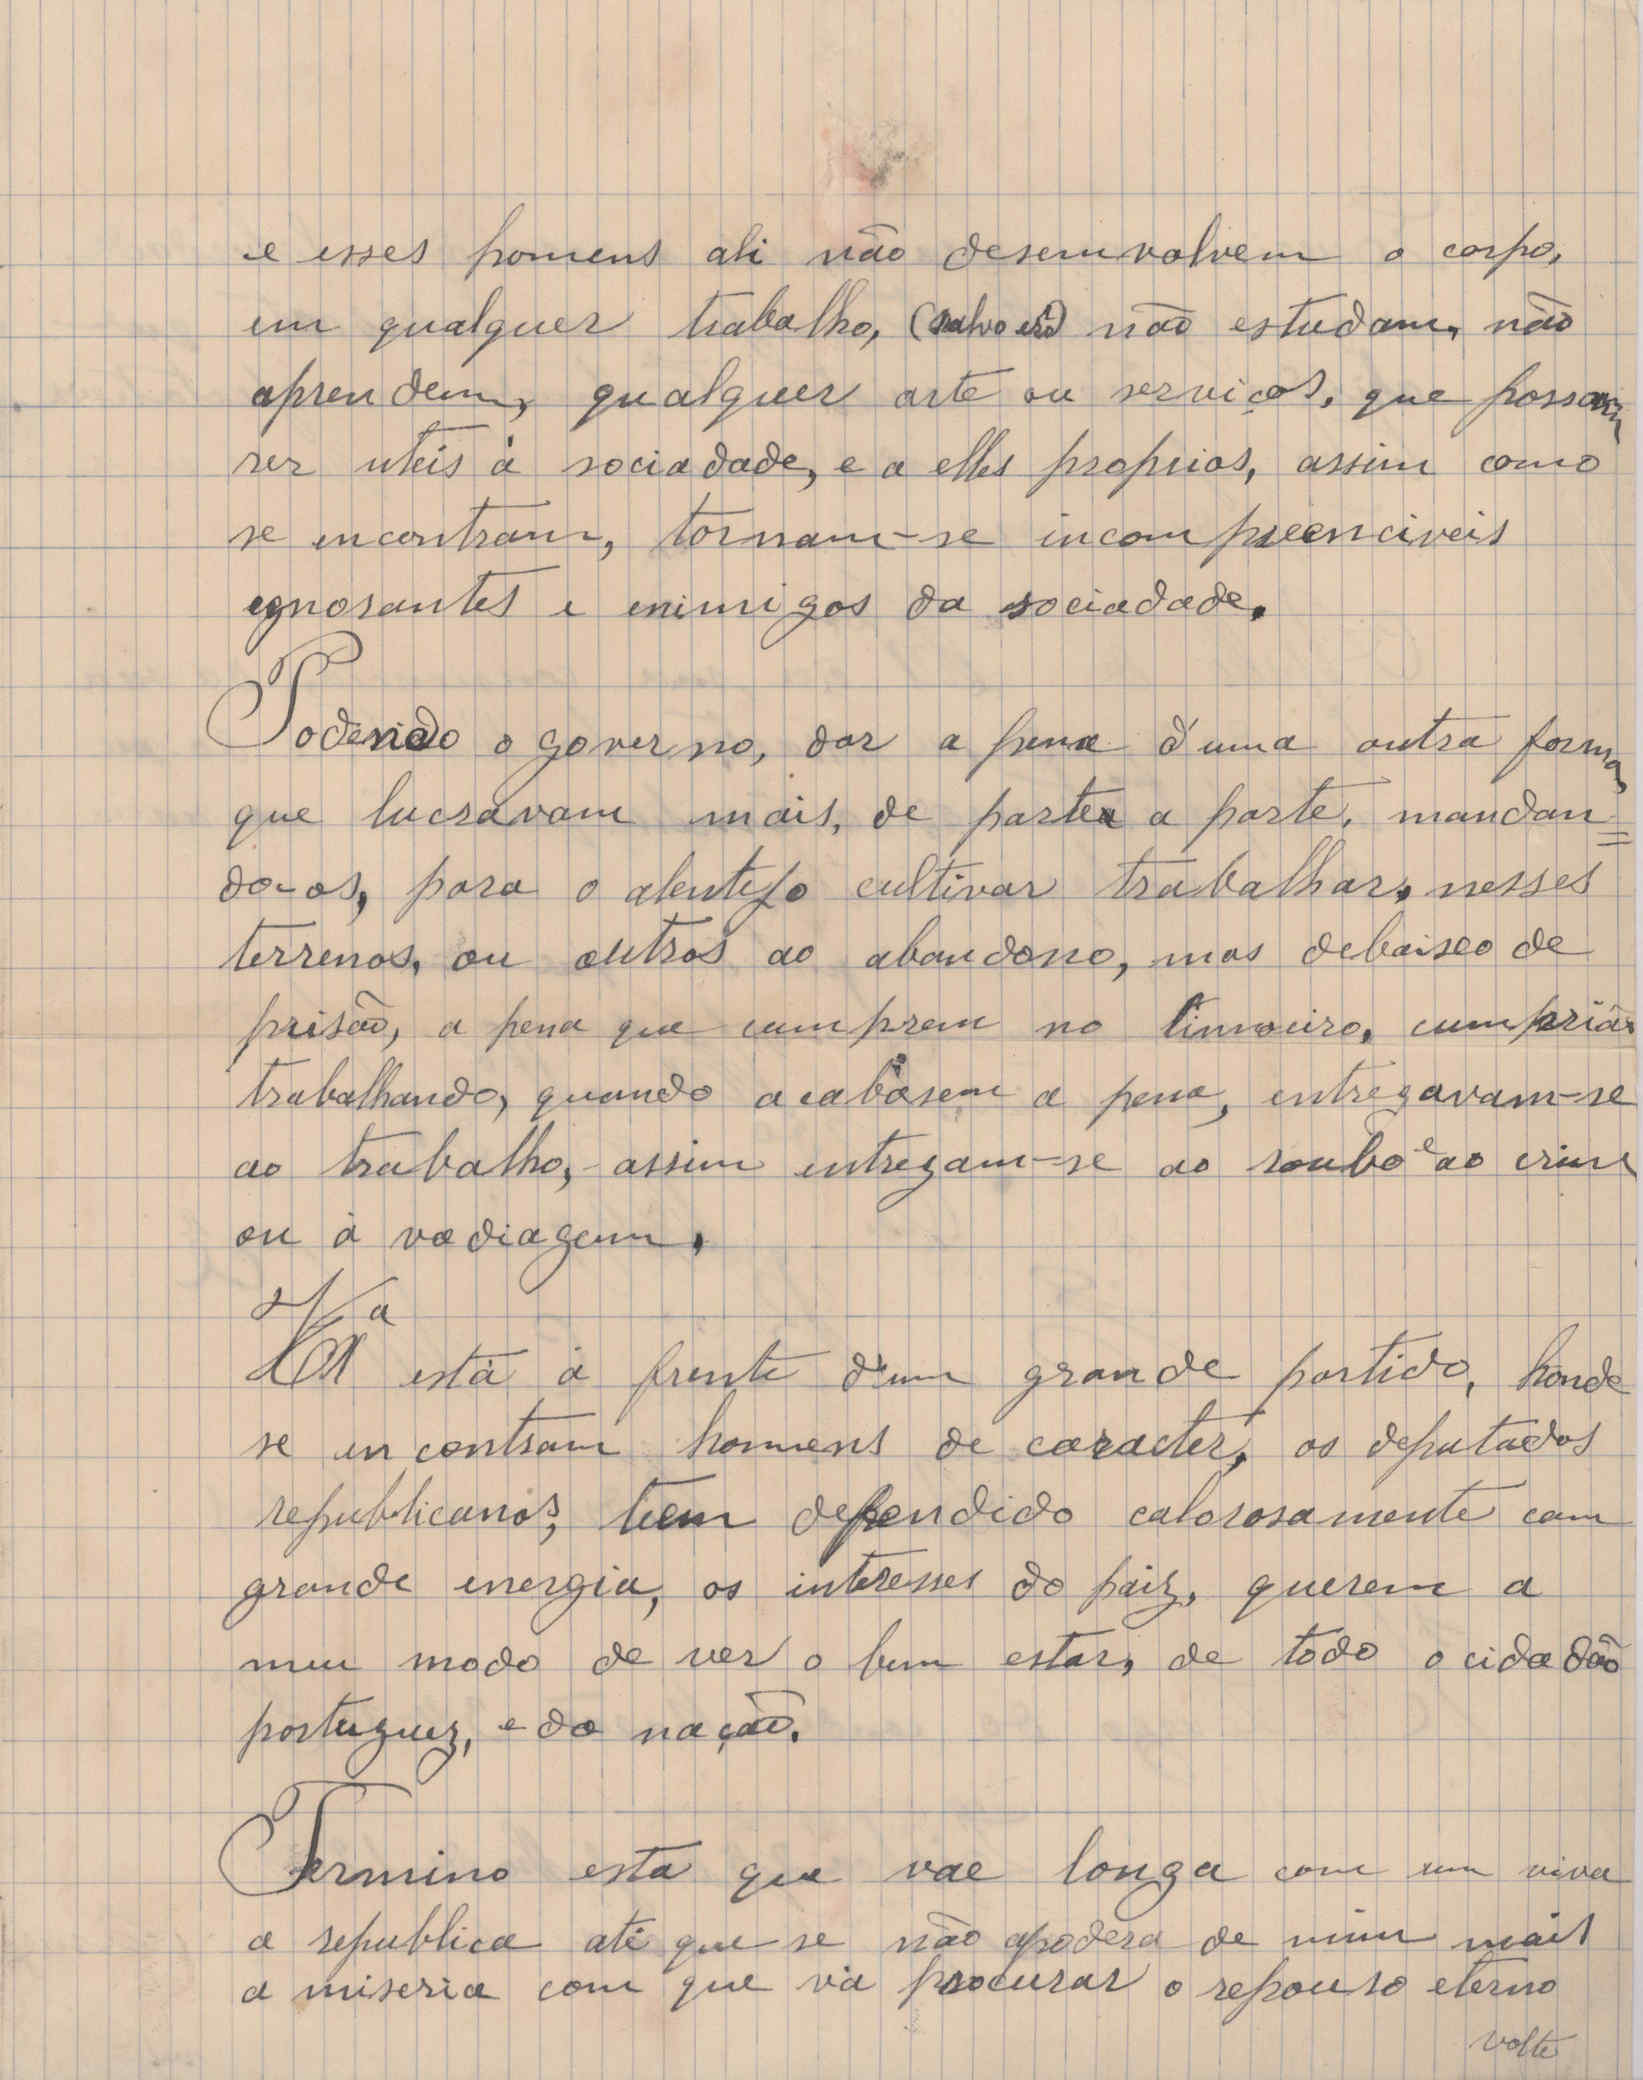 e esses homens ali não desemvolvem o corpo,
em qualquer trabalho, (salvo erro) não estudam, não
aprendem, qualquer arte ou serviços, que possam
ser uteis á sociadade, e a elles proprios, assim como
se encontram, tornam-se incompreenciveis
egnorantes e enimigos da sociadade.
Podendo o governo, dar a pena d'uma outra forma
que lucravam mais, de parte a parte, mandan=
do-os, para o alentejo cultivar trabalhar, nesses
terrenos, ou outros ao abandono, mas debaixo de
prisão, a pena que cumprem no limoeiro, cumpriãm
trabalhando, quando acabasem a pena, entregavam-se
ao trabalho, assim entregam-se ao roubo e ao crime
ou á vadiagem.
V. a
Ex está á frente d'um grande partido, honde
se encontram homens de caracter, os deputados
republicanos, teem defendido calorosamente com
grande energia, os interesses do paiz, querem a
meu modo de ver o bem estar, de todo o cidadão
portuguez, e da nação.
Termino esta que vae longa com um viva
a republica até que se não apodera de mim mais
a miseria com que vá procurar o repouso eterno
volte